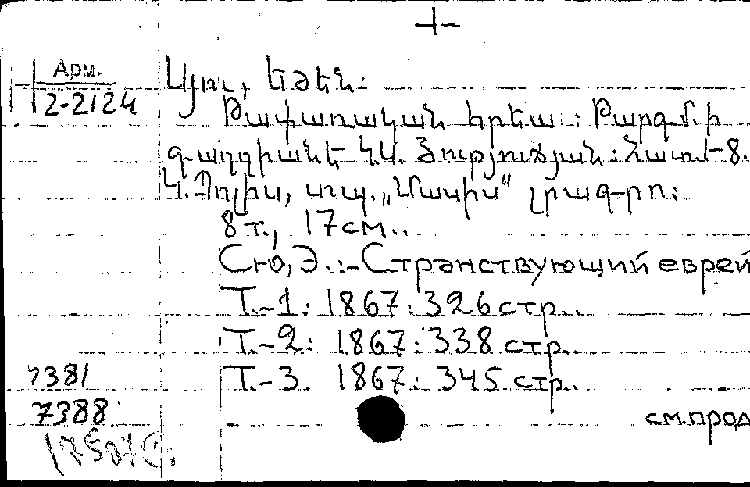 Арм.
2-2124
Սյու, Եժեն։
Թափառական հրեա։ Թարգմ. ի
գաղղիանէ Կ.Ա. Յութուճյան։ Հատ. 1-8.
Կ. Պոլիս, տպ. „Մասիս“ լրագրո։
8 т., 17 см..
Сю, Э.:-Странствующий еврей
Т.-1: 1867: 326 стр..
Т.-2: 1867: 338 стр..
Т.-3. 1867: 345 стр..
7381
7388
см.прод